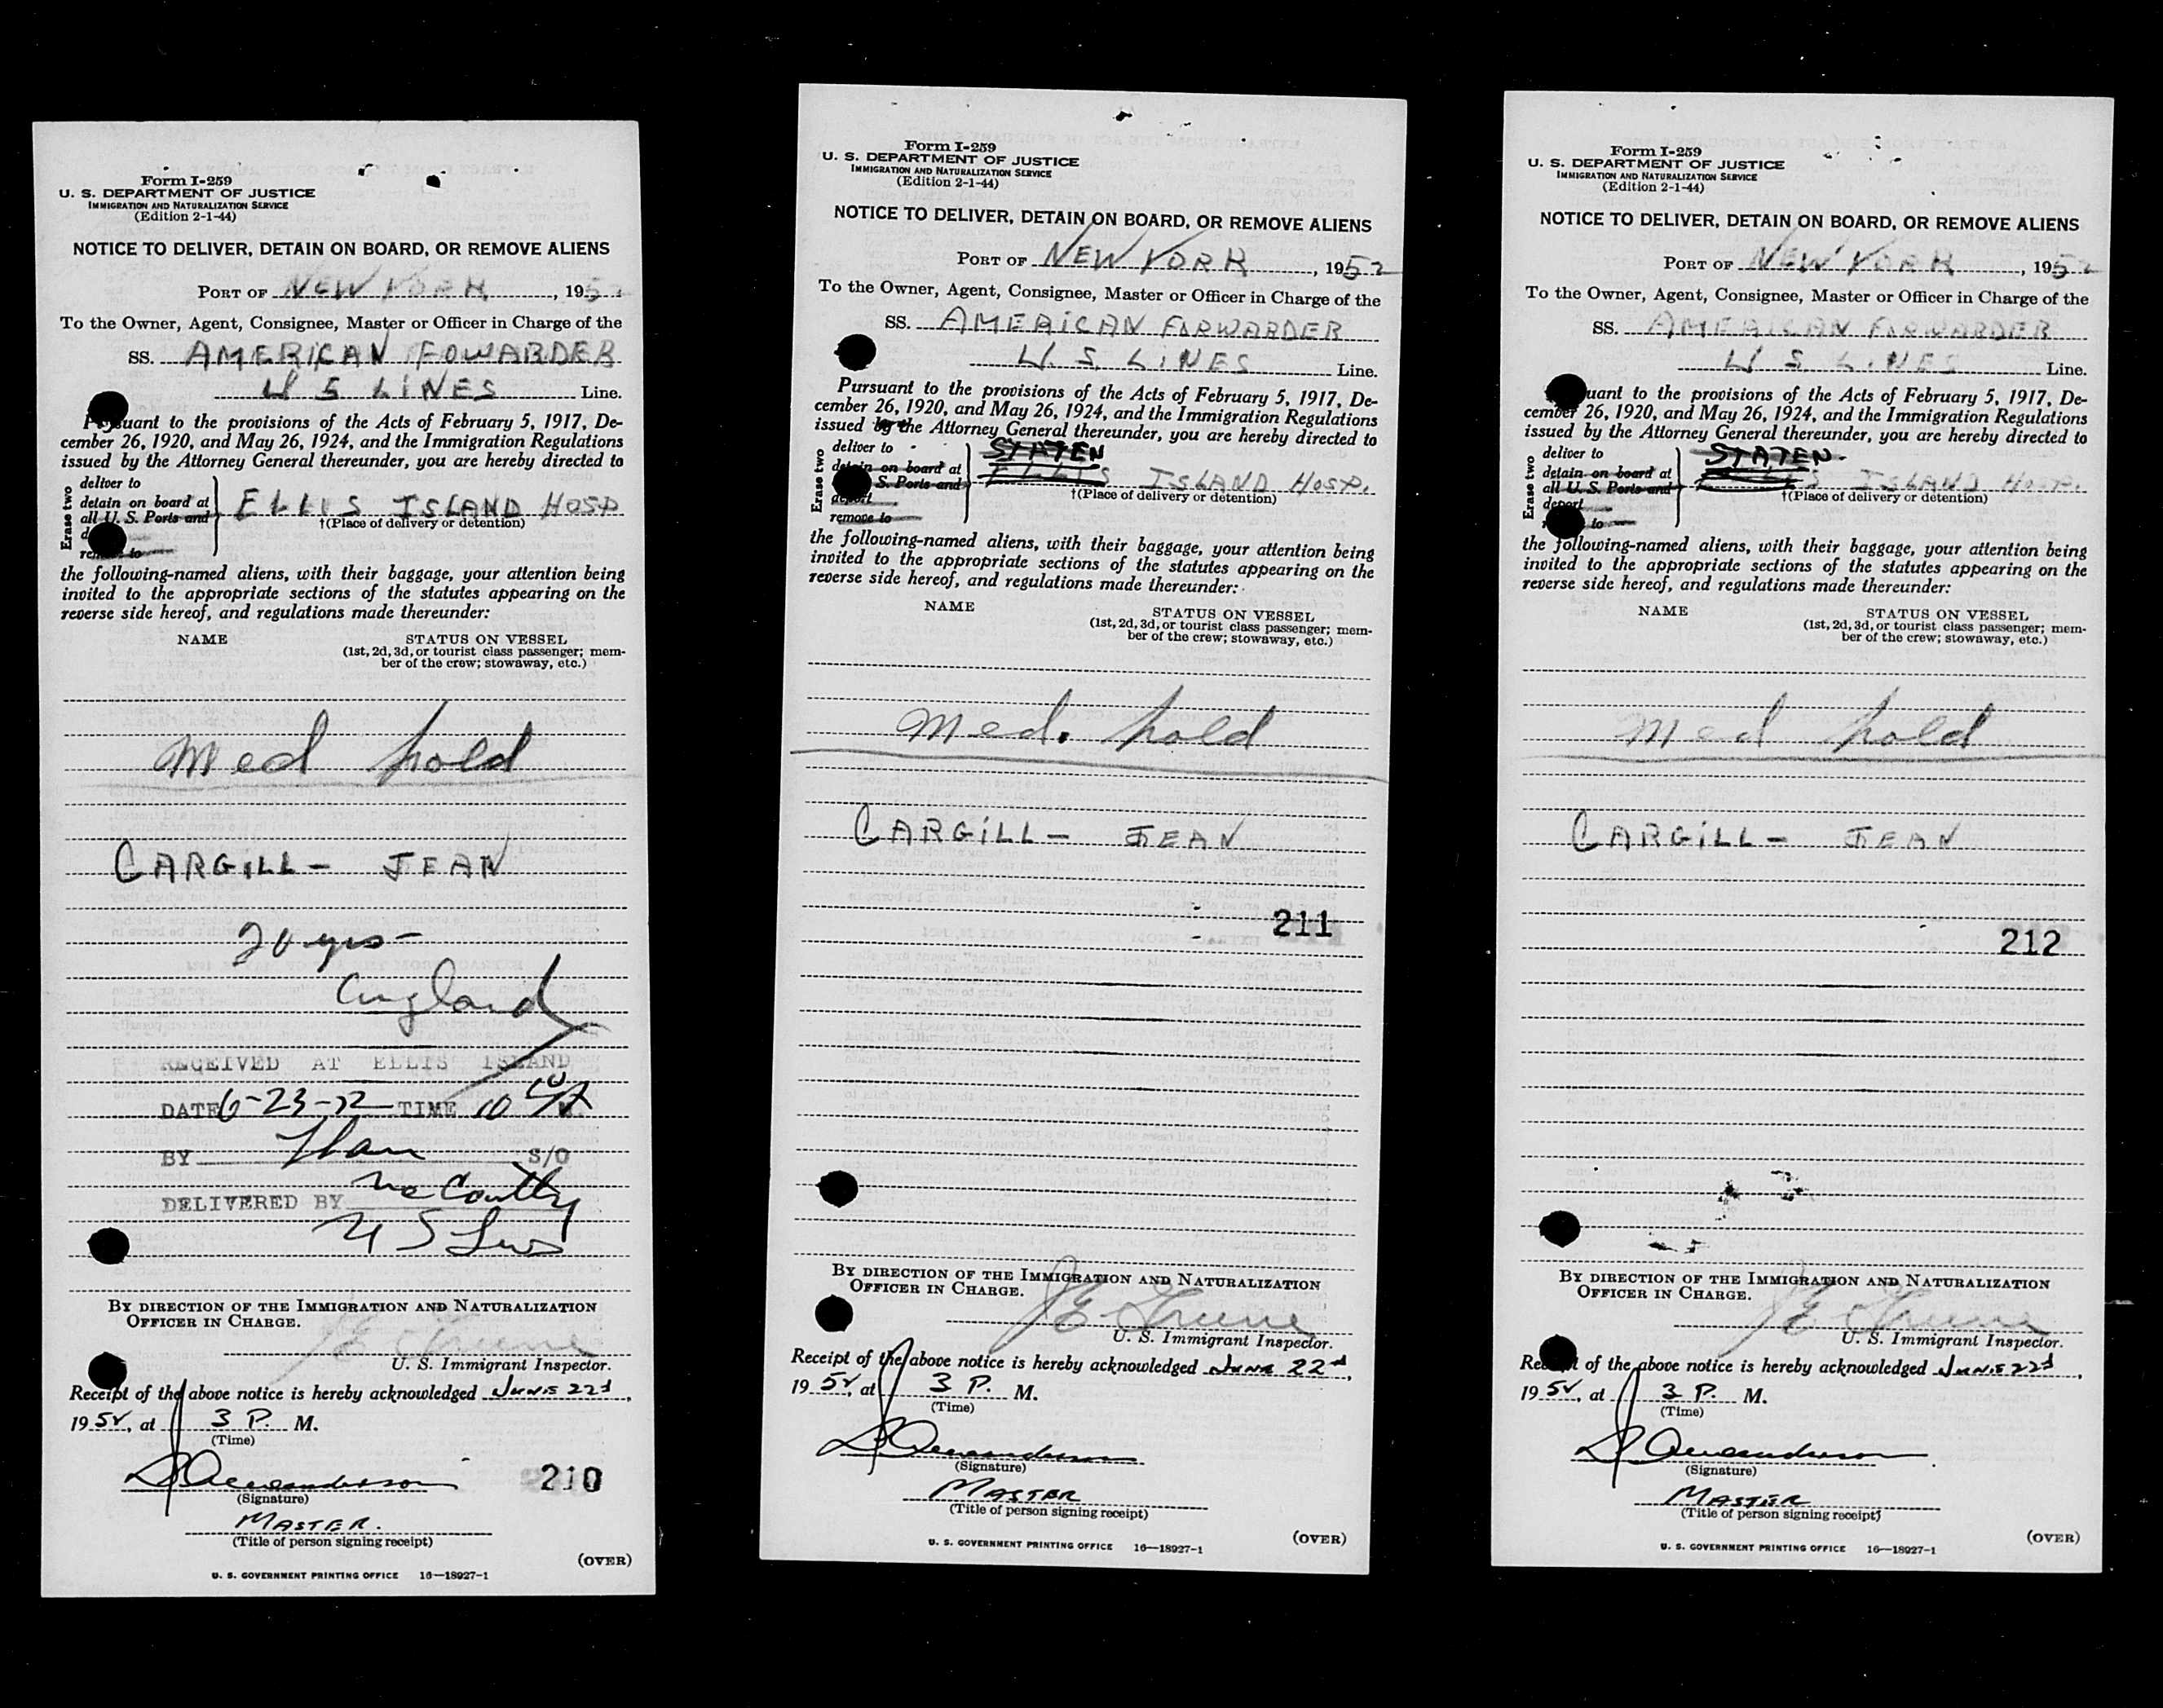 Form I-259
U. S. DEPARTMENT OF JUSTICE
IMMIGRATION AND NATURALIZATION SERVICE
(Edition 2-1-44)
NOTICE TO DELIVER, DETAIN ON BOARD, OR REMOVE ALIENS
PORT OF NEW YORK, 1952
To the Owner, Agent, Consignee, Master or Officer in Charge of the
SS. AMERICAN FOWARDER
U S LINES Line.
Pursuant to the provisions of the Acts of February 5, 1917, De-
cember 26, 1920, and May 26, 1924, and the Immigration Regulations
issued by the Attorney General thereunder, you are hereby directed to
Erase two
deliver to
detain on board at
all U. S. Ports and
remove to
ELLIS ISLAND HOSP
†(Place of delivery or detention)
the following-named aliens, with their baggage, your attention being
invited to the appropriate sections of the statutes appearing on the
reverse side hereof, and regulations made thereunder:
NAME STATUS ON VESSEL
(1st, 2d, 3d, or tourist class passenger; mem-
ber of the crew; stowaway, etc.)
Med hold
CARGILL - JEAN
20 yrs -
England
RECEIVED AT ELLIS ISLAND
DATE 6-23-52 TIME 10
BY S/O
DELIVERED BY
U S Lines
BY DIRECTION OF THE IMMIGRATION AND NATURALIZATION
OFFICER IN CHARGE.
J E Greene
U. S. Immigrant Inspector.
Receipt of the above notice is hereby acknowledged JUNE 22d,
1952, at 3 P. M.
(Time)
(Signature)
210
MASTER.
(Title of person signing receipt)
(OVER)
U. S. GOVERNMENT PRINTING OFFICE 16—18927-1
Form I-259
U. S. DEPARTMENT OF JUSTICE
IMMIGRATION AND NATURALIZATION SERVICE
(Edition 2-1-44)
NOTICE TO DELIVER, DETAIN ON BOARD, OR REMOVE ALIENS
PORT OF NEW YORK, 1952
To the Owner, Agent, Consignee, Master or Officer in Charge of the
SS. AMERICAN FORWARDER
U. S. LINES Line.
Pursuant to the provisions of the Acts of February 5, 1917, De-
cember 26, 1920, and May 26, 1924, and the Immigration Regulations
issued by the Attorney General thereunder, you are hereby directed to
Erase two
deliver to
detain on board at
S. Ports and
deport
remove to
STATEN
ELLIS ISLAND HOSP.
†(Place of delivery or detention)
the following-named aliens, with their baggage, your attention being
invited to the appropriate sections of the statutes appearing on the
reverse side hereof, and regulations made thereunder:
NAME STATUS ON VESSEL
(1st, 2d, 3d, or tourist class passenger; mem-
ber of the crew; stowaway, etc.)
Med. hold
CARGILL - JEAN
211
BY DIRECTION OF THE IMMIGRATION AND NATURALIZATION
OFFICER IN CHARGE.
J E Greene
U. S. Immigrant Inspector.
Receipt of the above notice is hereby acknowledged JUNE 22d,
1952, at 3 P. M.
(Time)
(Signature)
MASTER
(Title of person signing receipt)
(OVER)
U. S. GOVERNMENT PRINTING OFFICE 16—18927-1
Form I-259
U. S. DEPARTMENT OF JUSTICE
IMMIGRATION AND NATURALIZATION SERVICE
(Edition 2-1-44)
NOTICE TO DELIVER, DETAIN ON BOARD, OR REMOVE ALIENS
PORT OF NEW YORK, 1952
To the Owner, Agent, Consignee, Master or Officer in Charge of the
SS. AMERICAN FORWARDER
U S LINES Line.
Pursuant to the provisions of the Acts of February 5, 1917, De-
cember 26, 1920, and May 26, 1924, and the Immigration Regulations
issued by the Attorney General thereunder, you are hereby directed to
Erase two
deliver to
detain on board at
all U. S. Ports and
deport
to
STATEN
ELLIS ISLAND HOSP.
†(Place of delivery or detention)
the following-named aliens, with their baggage, your attention being
invited to the appropriate sections of the statutes appearing on the
reverse side hereof, and regulations made thereunder:
NAME STATUS ON VESSEL
(1st, 2d, 3d, or tourist class passenger; mem-
ber of the crew; stowaway, etc.)
Med hold
CARGILL - JEAN
212
BY DIRECTION OF THE IMMIGRATION AND NATURALIZATION
OFFICER IN CHARGE.
J E Greene
U. S. Immigrant Inspector.
Receipt of the above notice is hereby acknowledged JUNE 22d,
1952, at 3 P. M.
(Time)
(Signature)
MASTER
(Title of person signing receipt)
(OVER)
U. S. GOVERNMENT PRINTING OFFICE 16—18927-1